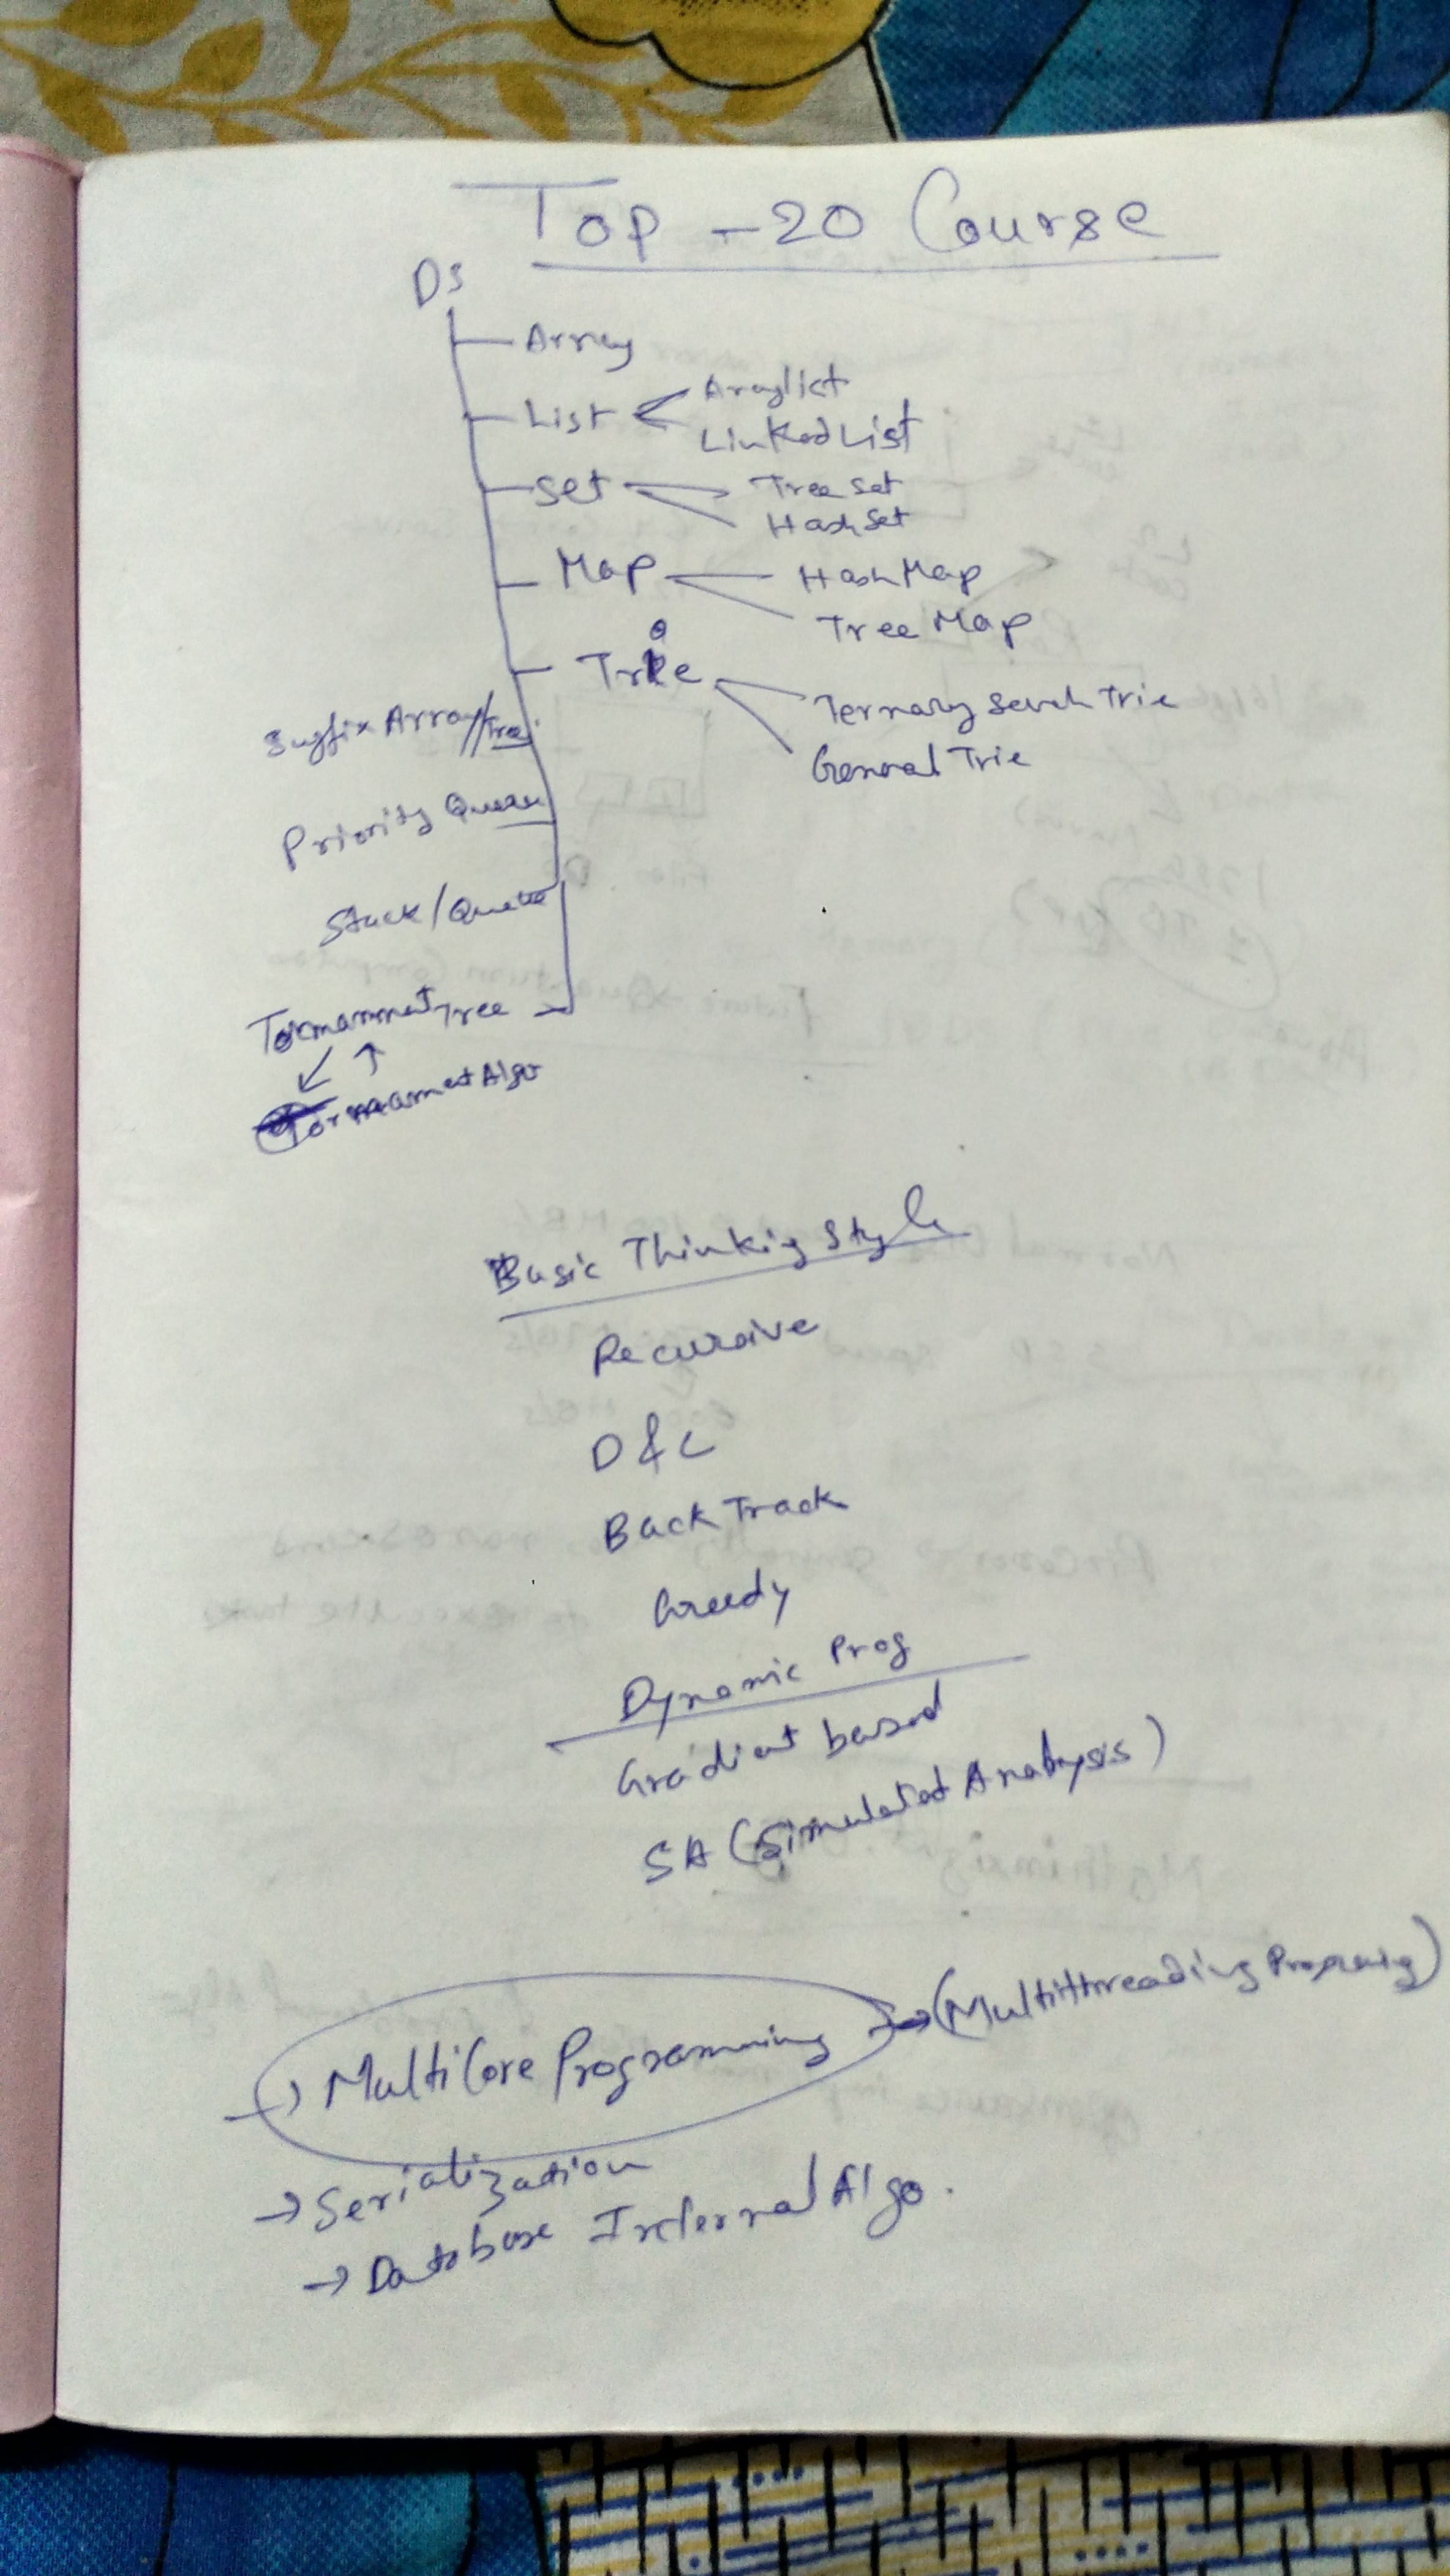 Top - 20 Course
DS
Array
List
Araylist
LinkedList
set
Tree set
Hash Set
Map
HashMap
Tree Map
Trie
Ternary Serch Trie
General Trie
Suffix Array/Tree
Priority Queue
Stack/Queue
Tree
Algo
Basic Thinkig Style
Recursive
D & C
Back Track
Greedy
Dynamic Prog
Gradient based
SA (Simulated Analysis)
→ MultiCore Programming → (Multithreading
→ Serialization
→ Database Internal Algo.